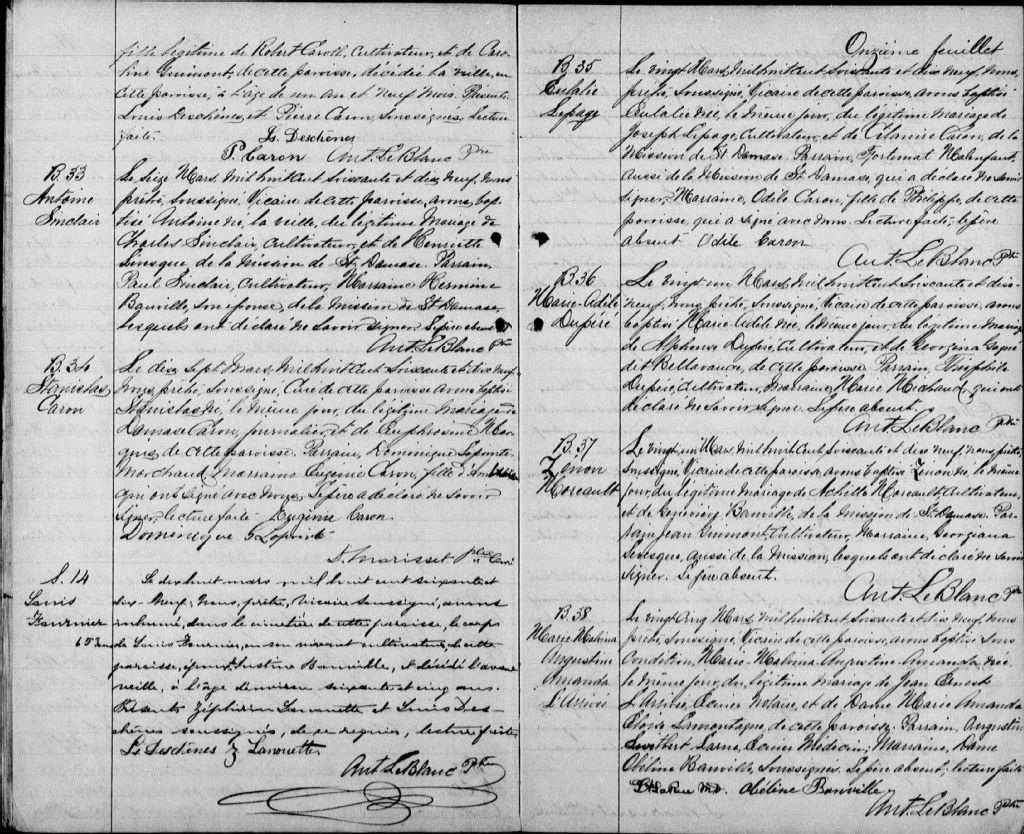 fille légitime de Robert Caroll, Cultivateur, et de Caro-
line Guimont, de cette paroisse, décédée la veille, en
cette paroisse, à l'âge de un an et neuf mois. Présents
Louis Deschènes, et Pierre Caron, soussignés, Lecture
faite.
L. Deschènes
P. Caron Ant. LeBlanc Ptre
B. 33
Antoine
Sinclair
Le seize Mars, mil huit cent soixante et dix neuf, nous
prêtre, soussigné, Vicaire de cette paroisse, avons bap-
tisé Antoine né, la veille, du légitime mariage de
Charles Sinclair, Cultivateur, et de Henriette
Levesque de la mission de St Damase. Parrain,
Paul Sinclair, Cultivateur, Marraine Hermine
Banville, son épouse, de la mission de St Damase,
lesquels ont déclaré ne savoir signer. Le père absent
Ant. LeBlanc Ptre
B. 34
Stanislas
Caron
Le dix sept Mars, mil huit cent soixante et dix neuf,
nous, prêtre, soussigné, Curé de cette paroisse avons baptisé
Stanislas né, le même jour, du légitime mariage de
Damase Caron, journalier, et de Euphrosine Mar-
quis, de cette paroisse. Parrain, Dominique Lapointe
marchand, marraine Eugénie Caron, fille
qui ont signé avec nous. Le père a déclaré ne savoir
signer, lecture faite. Eugénie Caron.
Dominique Lapointe
Ptre Curé
S. 14
Louis
Fournier
65 ans
Le dix huit mars mil huit cent soixante et
dix-neuf, nous, prêtre, Vicaire soussigné, avons
inhumé, dans le cimetière de cette paroisse, le corps
de Louis Fournier, en son vivant cultivateur, de cette
paroisse, époux, Justine Banville, et décédé l'avant
veille, à l'âge d'environ soixante et cinq ans.
Présents Zéphirin Lanouette et Louis Des-
chènes soussignés, de ce requis, lecture faite.
Ls Deschènes Z Lanouette
Ant. LeBlanc Ptre
Onzième feuillet
B. 35
Eulalie
Lepage
Le vingt Mars, mil huit cent soixante et dix neuf, nous,
prêtre, soussigné, Vicaire de cette paroisse, avons baptisé
Eulalie née, le même jour, du légitime mariage de
Joseph Lepage, Cultivateur, et de Célanire Caron, de la
Mission de St Damase, Parrain, Fortunat Malenfant,
aussi de la Mission de St Damase, qui a déclaré ne savoir
signer, Marraine, Odile Caron, fille de Philippe, de cette
paroisse, qui a signé avec nous. Lecture faite, le père
absent Odile Caron
Ant. LeBlanc Ptre
B. 36
Marie-Adèle
Dupéré
Le vingt un Mars, mil huit cent soixante et dix-
neuf, nous, prêtre, soussigné, Vicaire de cette paroisse, avons
baptisé Marie Adèle née, le même jour, du légitime mariage
de Alphonse Dupéré, Cultivateur, et de Georgina Gagné
dit Bellavance, de cette paroisse. Parrain, Théophile
Dupéré, Cultivateur, marraine Marie Michaud, qui ont
déclaré ne savoir signer. Le père absent.
Ant. LeBlanc Ptre
B. 37
Zénon
Moreault
Le vingt un Mars, mil huit cent soixante et dix neuf, nous, prêtre,
soussigné, Vicaire de cette paroisse, avons baptisé Zénon né le même
jour, du légitime mariage de Achille Moreault, Cultivateur,
et de Geneviève Banville, de la mission de St Damase. Par-
rain, Jean Guimont, Cultivateur, Marraine, Georgiana
Levesque, aussi de la Mission, lesquels ont déclaré ne savoir
signer. Le père absent.
Ant. LeBlanc Ptre
B. 38
Marie Malvina
Augustine
Amanda
L'Arrivée
Le vingt cinq Mars, mil huit cent soixante et dix neuf, nous
prêtre, soussigné, Vicaire de cette paroisse, avons baptisé sous
condition, Marie-Malvina Augustine Amanda née
le même jour, du légitime mariage de Jean Ernest
L'Arrivée Ecuier Notaire, et de Dame Marie Amanda
Eloïse Lamontagne de cette paroisse, Parrain, Augustin
Larue, Ecuier Médecin, Marraine, Dame
Obéline Banville, soussignés. Le père absent; lecture faite
LaRue MD. Obéline Banville
Ant. LeBlanc Ptre